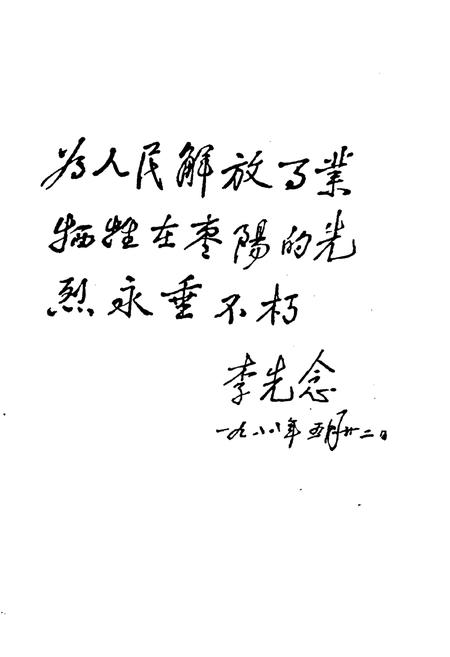 为人民解放事業
牺牲在枣陽的先
烈永垂不朽
李先念
一九八八年五月廿二日